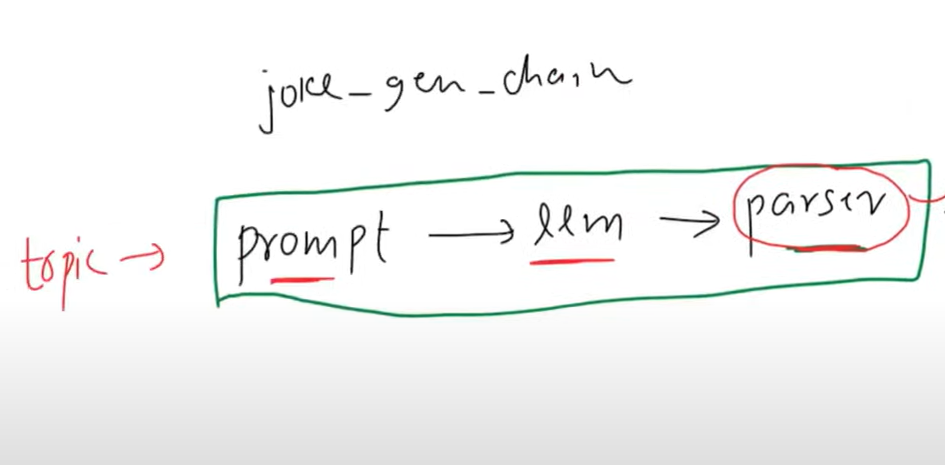 joke_gen_chain
topic → prompt → llm → parser